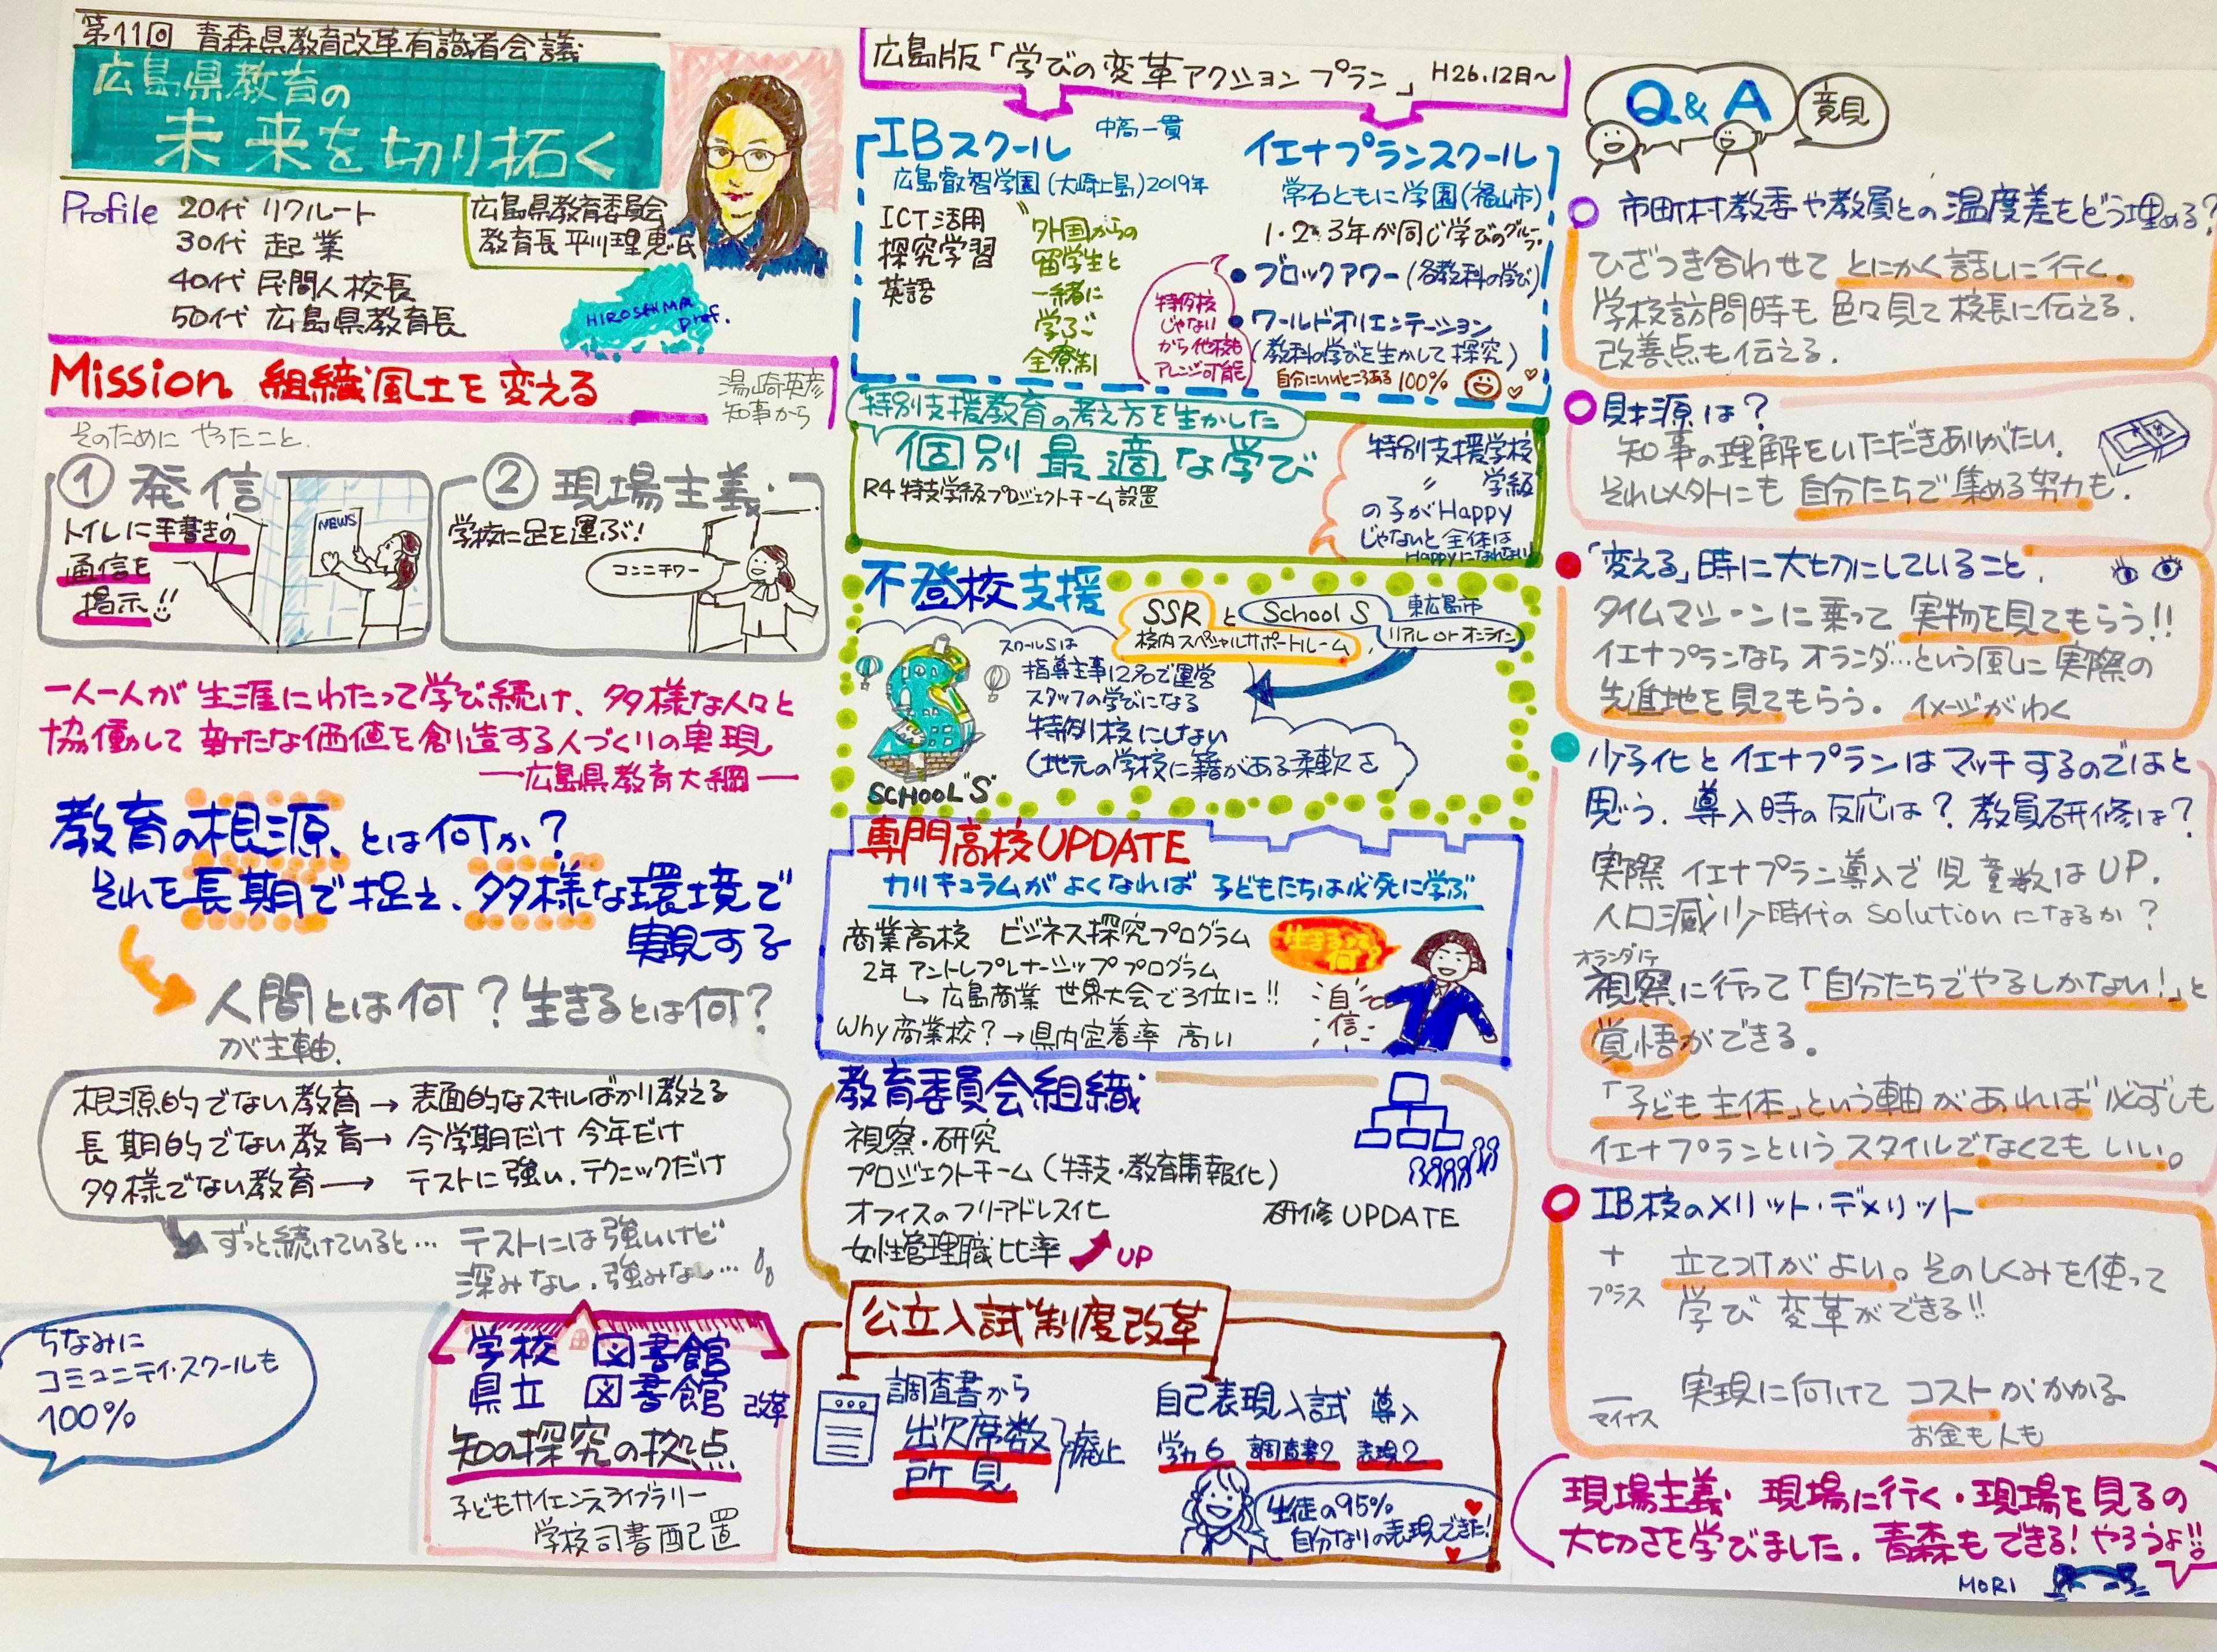 第11回 青森県教育改革有識者会議
広島県教育の
未来を切り拓く
Profile 20代 リクルート
30代 起業
40代 民間人校長
50代 広島県教育長
広島県教育委員会
教育長 平川理恵氏
HIROSHIMA
Pref.
Mission 組織風土を変える
湯崎英彦
知事から
そのために やったこと
① 発信
トイレに手書きの
通信を
掲示!!
NEWS
② 現場主義
学校に足を運ぶ!
コンニチワー
一人一人が生涯にわたって学び続け、多様な人々と
協働して新たな価値を創造する人づくりの実現
―広島県教育大綱―
教育の根源、とは何か?
それを長期で捉え、多様な環境で
実現する
人間とは何?生きるとは何?
が主軸.
根源的でない教育→表面的なスキルばかり教える
長期的でない教育→今学期だけ 今年だけ
多様でない教育→テストに強い.テクニックだけ
ずっと続けていると… テストには強いけど
深みなし.強みなし…
ちなみに
コミュニティ・スクールも
100%
学校 図書館
県立 図書館 改革
知の探究の拠点
子どもサイエンスライブラリー
学校司書配置
広島版「学びの変革アクションプラン」 H26.12月~
IBスクール 中高一貫
広島叡智学園(大崎上島)2019年
ICT活用
探究学習
英語
外国からの
留学生と
一緒に
学ぶ
全寮制
イエナプランスクール
常石ともに学園(福山市)
1・2・3年が同じ学びのグループ
●ブロックアワー(各教科の学び)
●ワールドオリエンテーション
(教科の学びを生かして探究)
自分にいいところある100%
特例校
じゃない
から他校も
アレンジ可能
特別支援教育の考え方を生かした
個別最適な学び
R4特支学級プロジェクトチーム設置
特別支援学校
〃 学級
の子がHappy
じゃないと全体は
Happyになれない
不登校支援
SSR と School S 東広島市
校内スペシャルサポートルーム リアル or オンライン
スクールSは
指導主事12名で運営
スタッフの学びになる
特例校にしない
(地元の学校に籍がある柔軟さ
SCHOOL"S"
専門高校UPDATE
カリキュラムがよくなれば 子どもたちは必死に学ぶ
商業高校 ビジネス探究プログラム
2年 アントレプレナーシッププログラム
↳広島商業 世界大会で3位に!!
Why商業校?→県内定着率 高い
生きるって何?
自信
教育委員会組織
視察・研究
プロジェクトチーム(特支・教育情報化)
オフィスのフリーアドレス化 研修UPDATE
女性管理職比率 UP
公立入試制度改革
調査書から
出欠席数
所見
廃止
自己表現入試 導入
学力6 調査書2 表現2
生徒の95%
自分なりの表現できた!
Q&A 意見
市町村教委や教員との温度差をどう埋める?
ひざつき合わせてとにかく話しに行く。
学校訪問時も色々見て校長に伝える.
改善点も伝える.
財源は?
知事の理解をいただきありがたい.
それ以外にも 自分たちで集める努力も.
「変える」時に大切にしていること.
タイムマシーンに乗って実物を見てもらう!!
イエナプランならオランダ…という風に実際の
先進地を見てもらう。 イメージがわく
少子化とイエナプランはマッチするのではと
思う.導入時の反応は?教員研修は?
実際イエナプラン導入で児童数はUP.
人口減少時代のsolutionになるか?
オランダに
視察に行って「自分たちでやるしかない!」と
覚悟ができる。
「子ども主体」という軸があれば必ずしも
イエナプランというスタイルでなくてもいい。
IB校のメリット・デメリット
+
プラス
立てつけがよい。そのしくみを使って
学び変革ができる!!
―
マイナス
実現に向けて コストがかかる
お金も人も
現場主義 現場に行く・現場を見るの
大切さを学びました.青森もできる!やろうよ!!
MORI